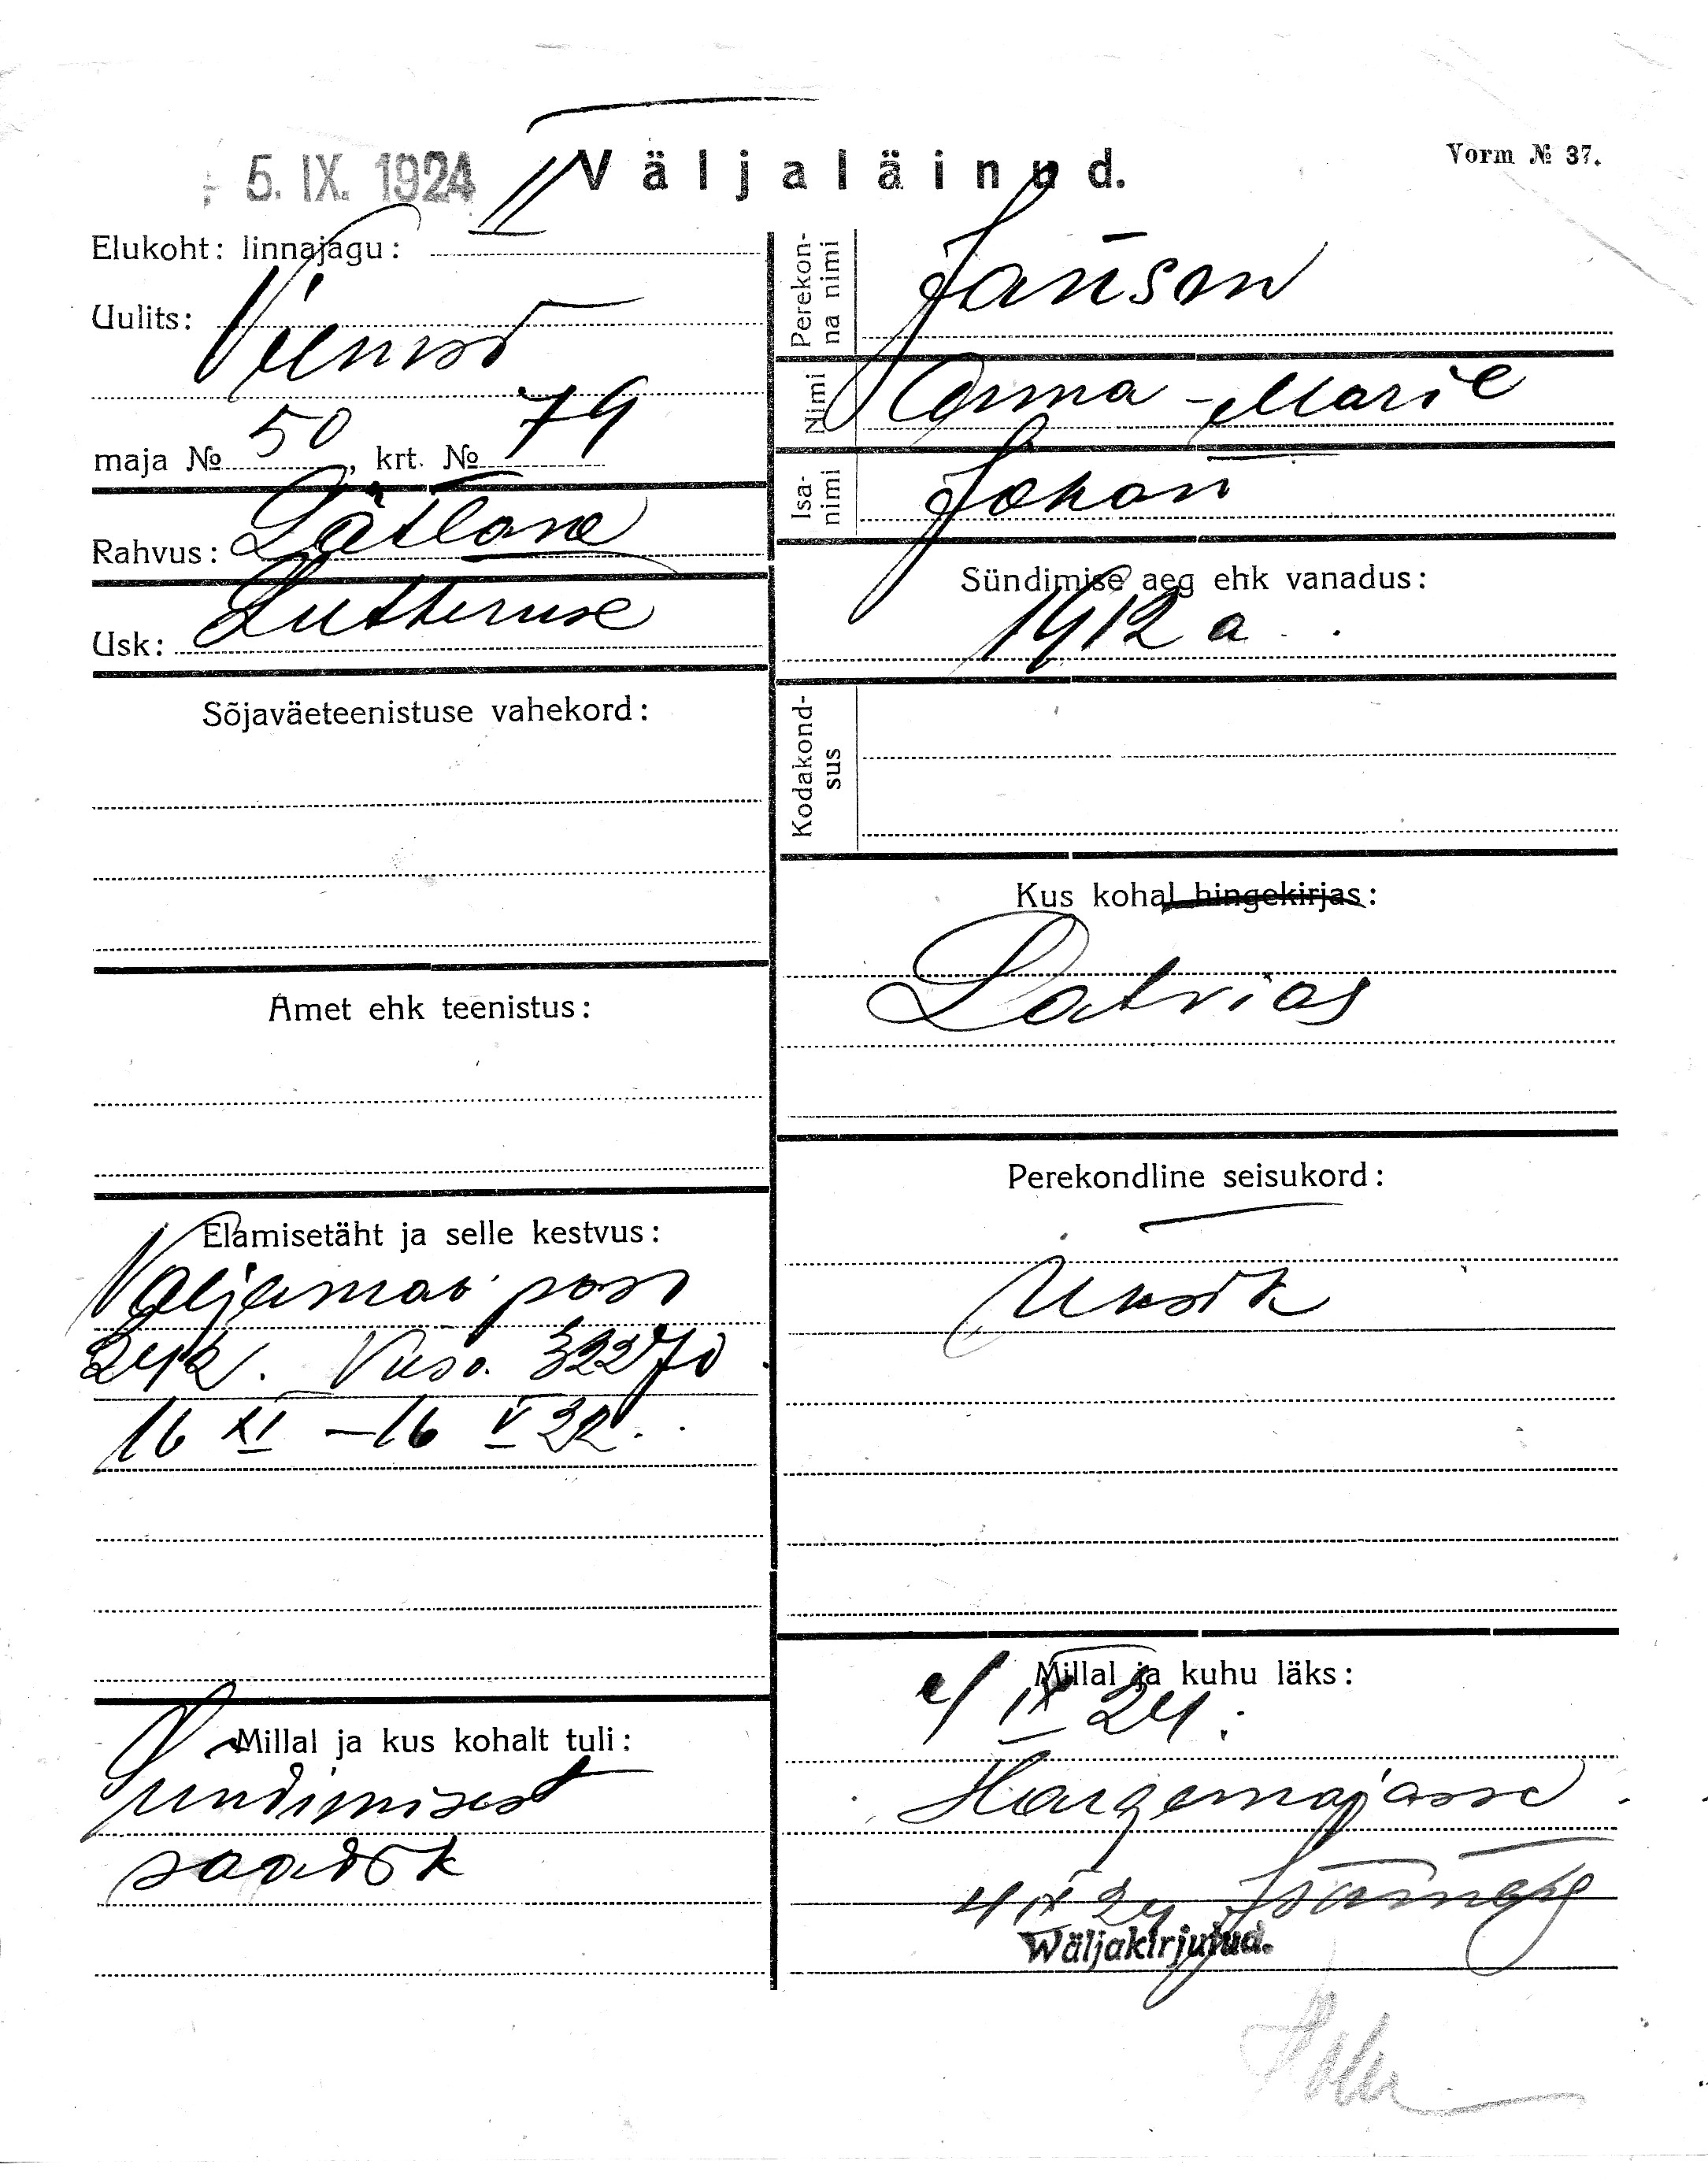 5. IX. 1924
Väljaläinud.
Vorm № 37.
Elukoht: linnajagu: II
Uulits:
maja № 50, krt. № 79
Rahvus: Lätlane
Usk: Lutheruse
Sõjaväeteenistuse vahekord:
Amet ehk teenistus:
Elamisetäht ja selle kestvus:
Väljamaa pass
242. Viisa. 32270
16 XI – 16 V 22.
Millal ja kus kohalt tuli:
Sündimisest
saadik
Perekonna nimi
Janson
Nimi
Anna-Marie
Isanimi
Johan
Sündimise aeg ehk vanadus:
1912 a.
Kodakondsus
Kus kohal hingekirjas:
Latvias
Perekondline seisukord:
Üksik
Millal ja kuhu läks:
4/IX 24.
Haigemajasse
4 IX 24
Wäljakirjutud.